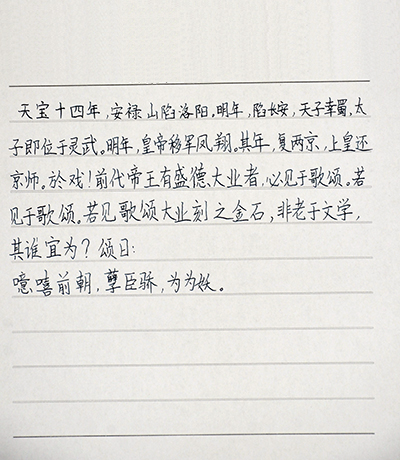 天宝十四年,安禄山陷洛阳。明年,陷长安,天子幸蜀,太
子即位于灵武。明年,皇帝移军凤翔。其年,复两京,上皇还
京师。於戏!前代帝王有盛德大业者,必见于歌颂。若
见于歌颂。若见歌颂大业刻之金石,非老于文学,
其谁宜为?颂曰:
噫嘻前朝,孽臣骄,为为妖。